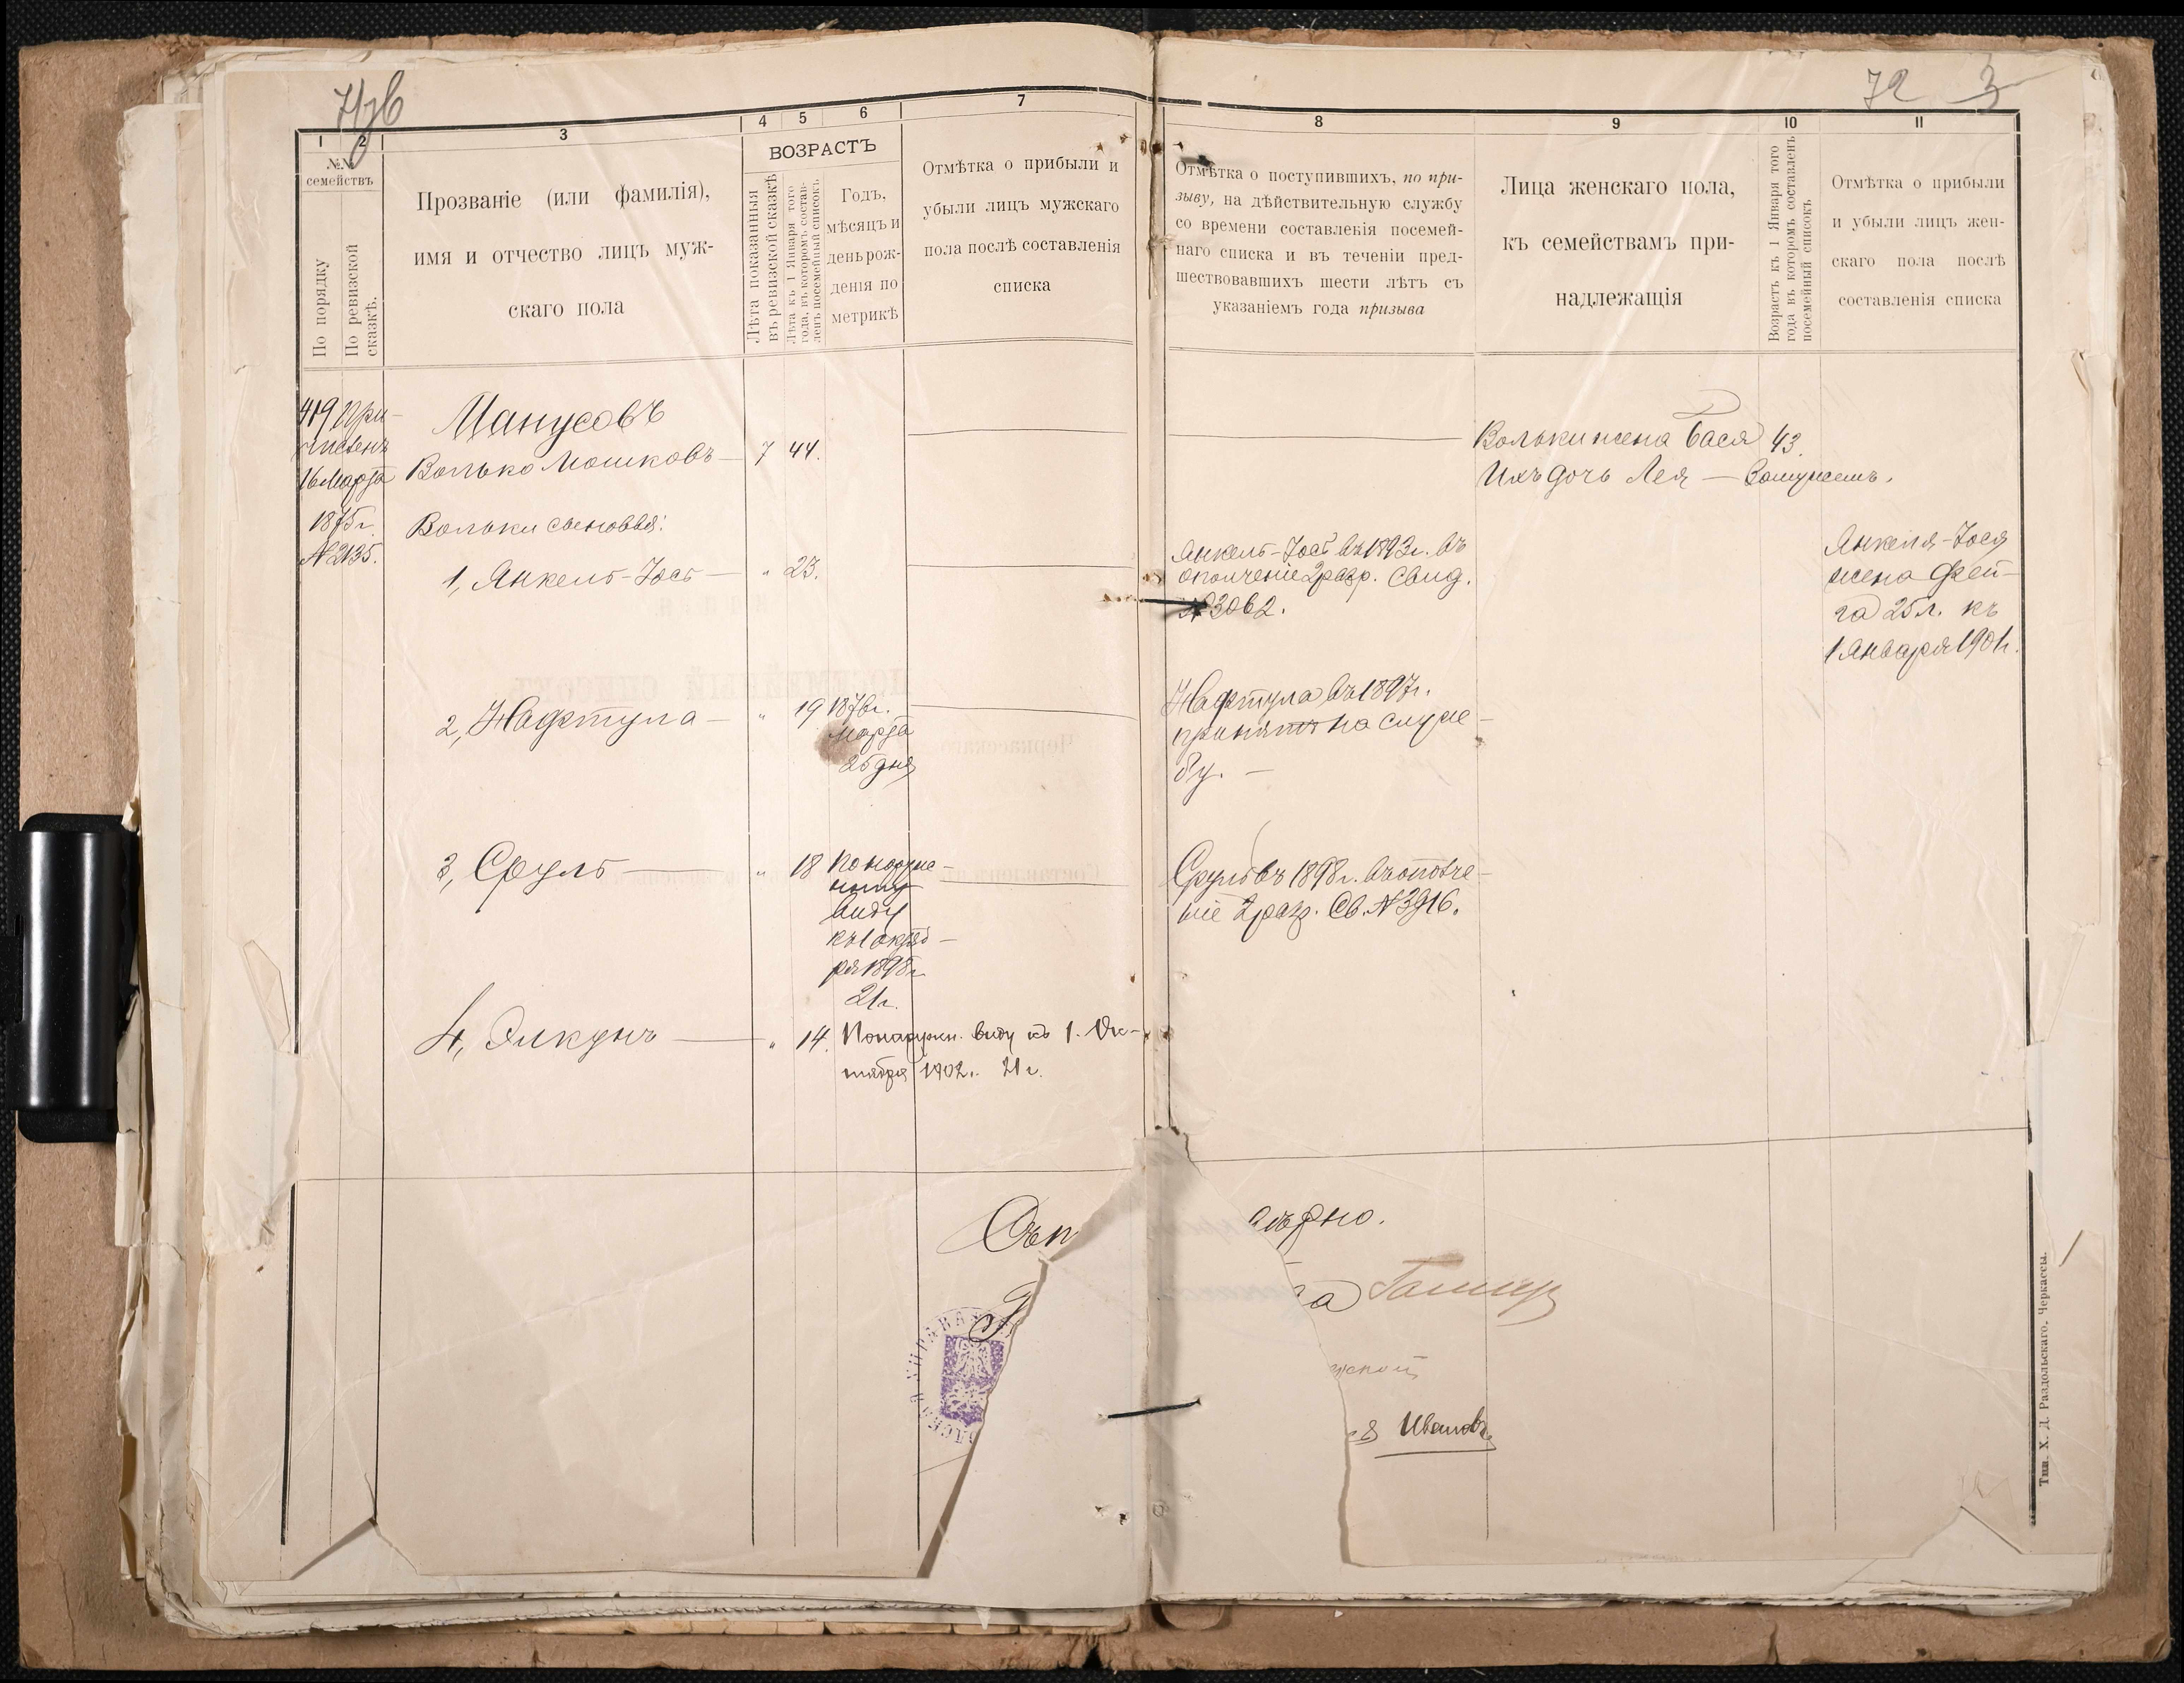 72 3
1 2 3 4 5 6 7
8 9 10 11
№№ семействъ
По порядку
По ревизской сказкѣ.
Прозваніе (или фамилія),
имя и отчество лицъ муж-
скаго пола
ВОЗРАСТЪ
Лѣта показанныя
въ ревизской сказкѣ
Лѣта къ 1 Января того
года, въ которомъ состав-
ленъ посемейный списокъ.
Годъ,
мѣсяцъ и
день рож-
денія по
метрикѣ
Отмѣтка о прибыли и
убыли лицъ мужскаго
пола послѣ составленія
списка
Отмѣтка о поступившихъ, по при-
зыву, на дѣйствительную службу
со времени составленія посемей-
наго списка и въ теченіи пред-
шествовавшихъ шести лѣтъ съ
указаніемъ года призыва
Лица женскаго пола,
къ семействамъ при-
надлежащія
Возрастъ къ 1 Января того
года въ которомъ составленъ
посемейный списокъ
Отмѣтка о прибыли
и убыли лицъ жен-
скаго пола послѣ
составленія списка
419 При-
численъ
16 Марта
1875 г.
№ 2135.
Манусовъ
Волько Мошковъ 7 44.
Вольки сыновья:
1, Янкель-Іось " 23.
2, Нафтула " 19 1876 г.
марта
25 дня
3, Сруль " 18 По наруж-
ному
виду
къ 1 октяб-
ря 1898 г.
21 г.
4, Элкунъ " 14. По наружн. виду къ 1. Ок-
тября 1902 г. 21 г.
Янкель-Іось въ 1893 г. въ
ополченіе 2 разр. Свид.
№ 3062.
Нафтула въ 1897 г.
принятъ на служ-
бу.
Сруль въ 1898 г. въ ополче-
ніе 2 разр. Св. № 3916.
Вольки жена Бася 43.
Ихъ дочь Лея — Замужемъ.
Янкеля-Іося
жена Фей-
га 25 л. къ
1 Января 1901 г.
Съ п
но.
Ивановъ
Тип. Х. Д. Раздольскаго, Черкассы.